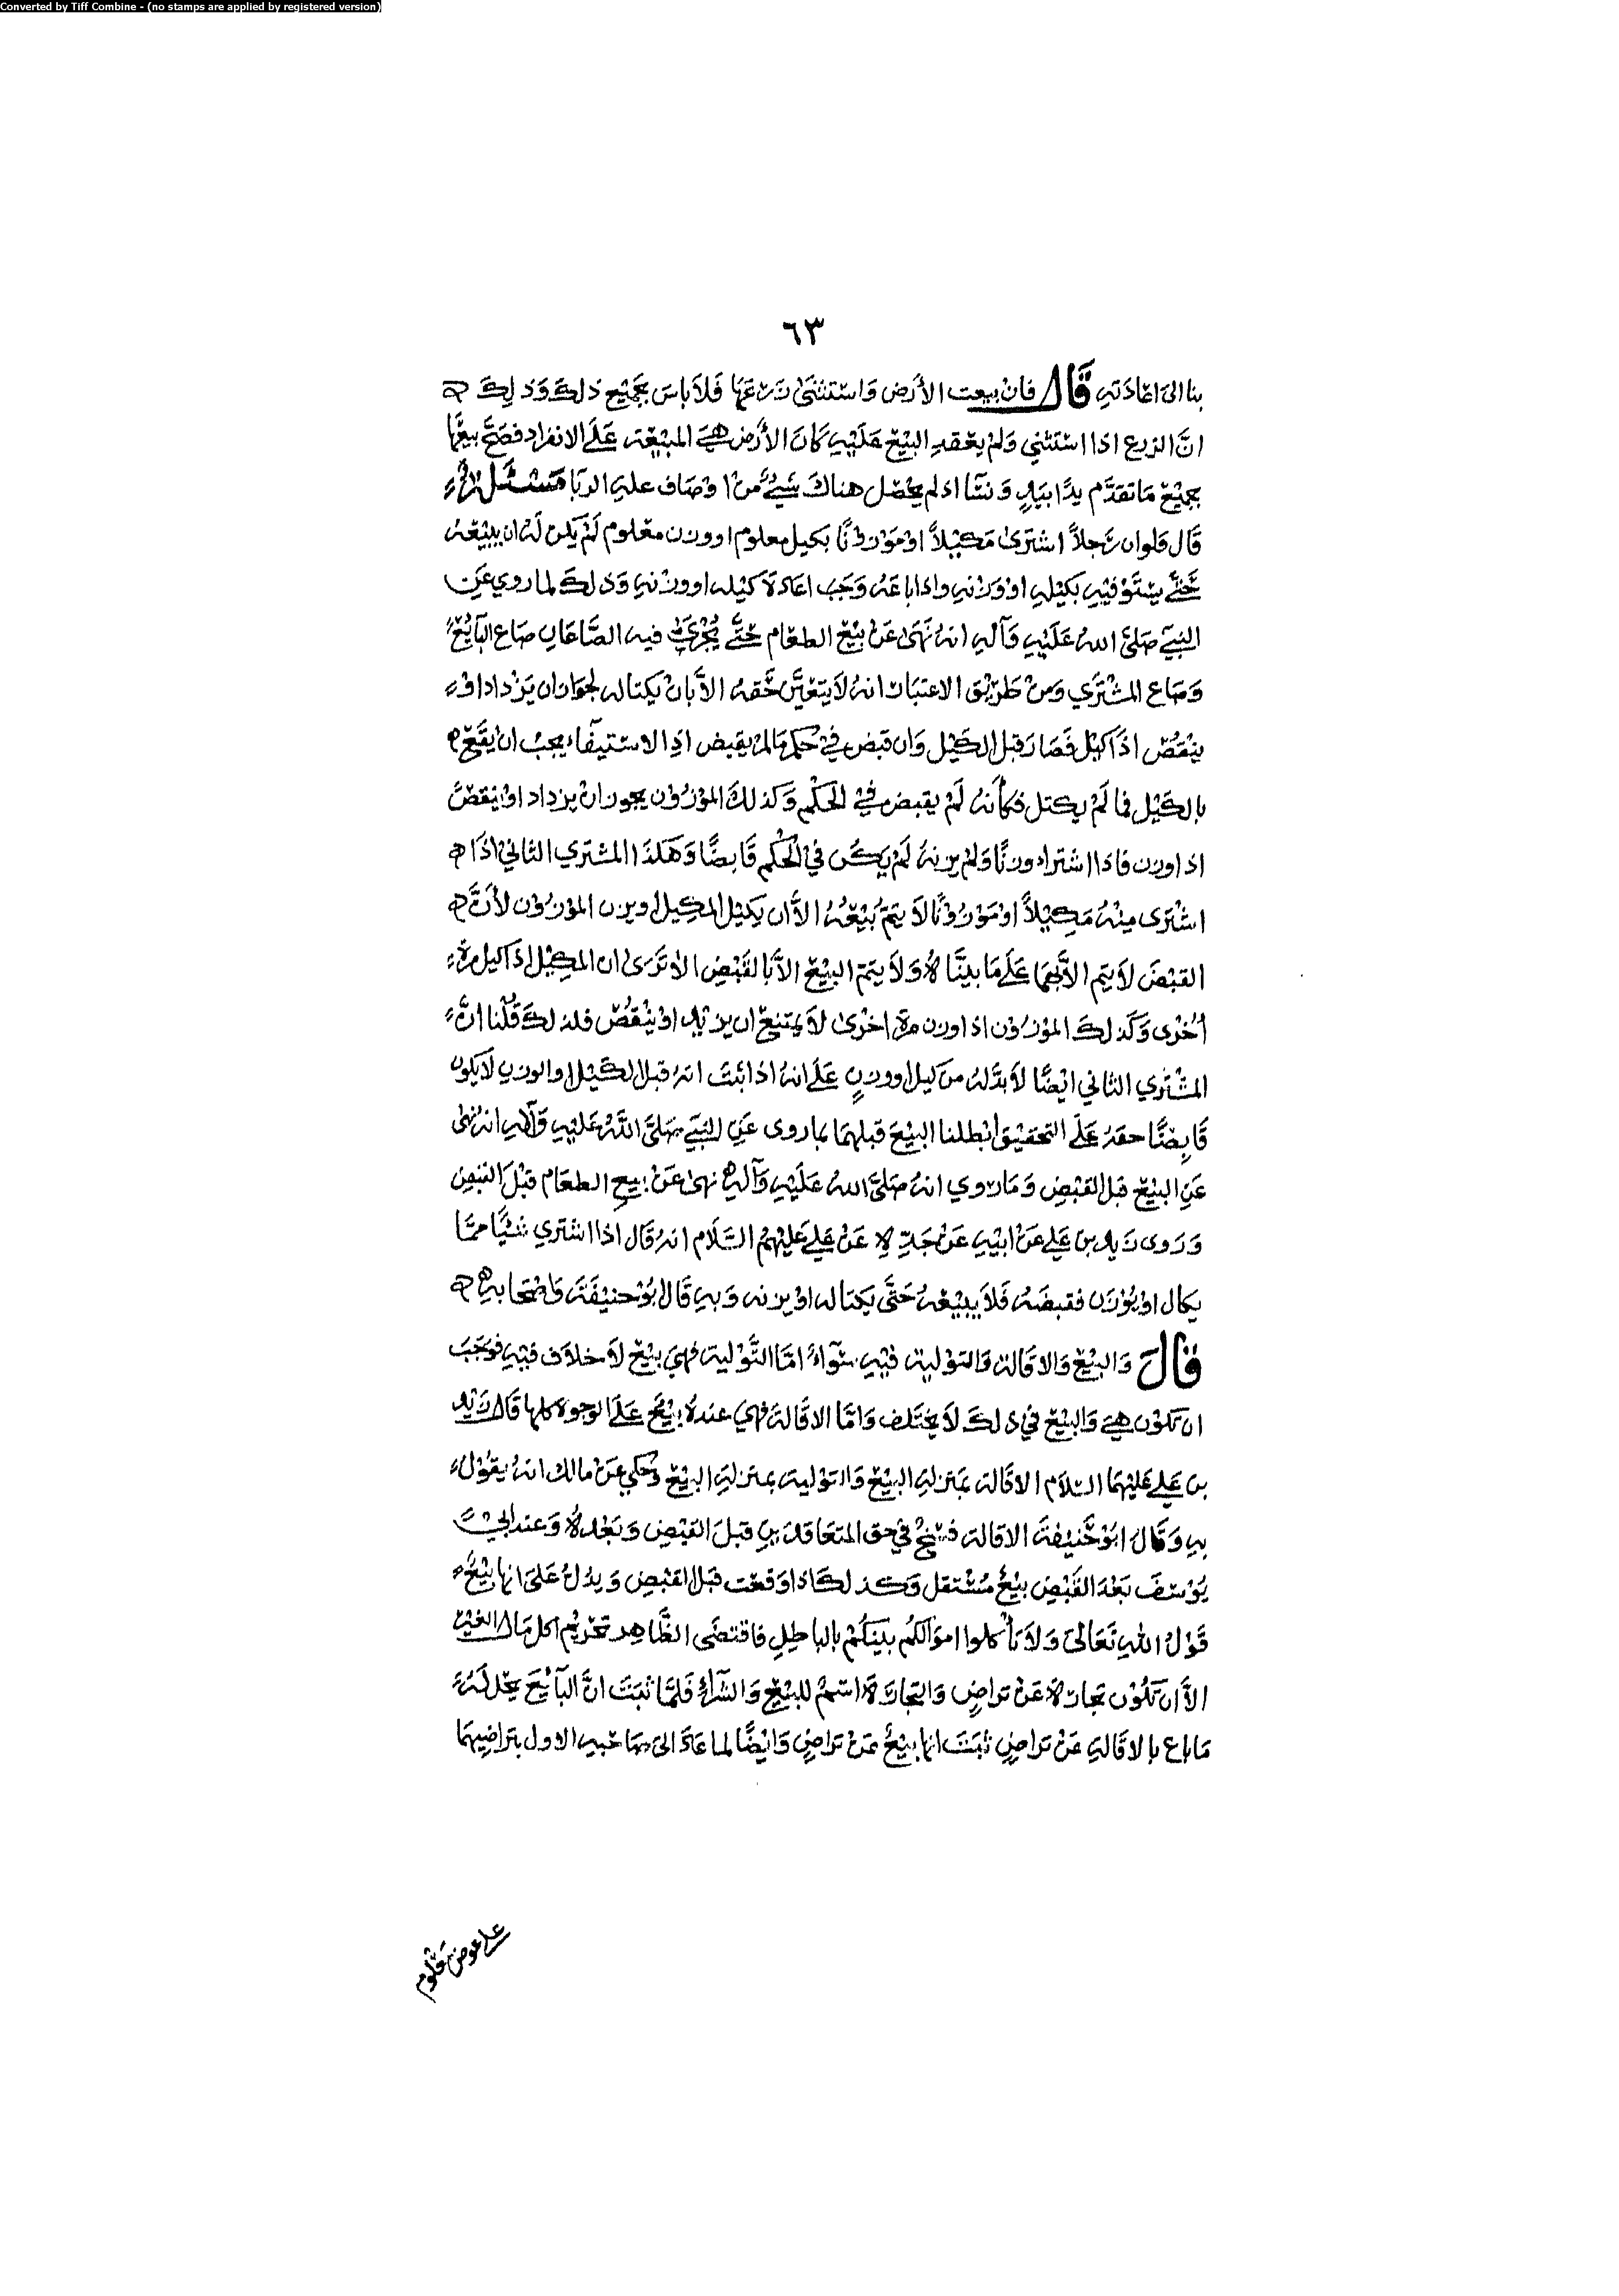 Converted by Tiff Combine - (no stamps are applied by registered version)
٦٣
بنا الى اعادته قال فان بيعت الأرض واستثنى زرعها فلا باس بجميع ذلك وذلك
انّ الزرع اذا استثني ولم يعقد البيع عليه كان الأرض هي المبيعة على الانفراد فصحّ بيعها
بجميع ما تقدّم يدًا بيدٍ ونسًا اذ لم يحصل هناك شيء من اوصاف علة الربا مسئلة
قال فلو ان رجلاً اشترى مكيلاً او موزونًا بكيل معلوم او وزن معلوم لم يكن له ان يبيعه
حتّى يستوفيه بكيله او وزنه واذا باعه وجب اعادة كيله او وزنه وذلك لما روي عن
النبي صلى الله عليه وآله انه نهى عن بيع الطعام حتّى يجري فيه الصّاعان صاع البآئع
وصاع المشتري ومن طريق الاعتبار انه لا يتعيّن حقه الاّ بان يكتاله لجواز ان يزداد او
ينقص اذا كيل فصار قبل الكيل وان قبض في حكم ما لم يقبض اذ الاستيفاء يجب ان يقع
بالكيل فما لم يكتل فكأنه لم يقبض في الحكم وكذلك الموزون يجوز ان يزداد او ينقص
اذا وزن فاذا اشتراه وزنًا ولم يزنه لم يكن في الحكم قابضًا وهكذا المشتري الثاني اذا
اشترى منه مكيلاً او موزونًا لا يتم بيعه الاّ ان يكيل المكيل او يزن الموزون لأنّ
القبض لا يتم الاّ بهما على ما بيناه ولا يتم البيع الاّ بالقبض الا ترى ان المكيل اذا كيل مرة
أخرى وكذلك الموزون اذا وزن مرة اخرى لا يمتنع ان يزيد او ينقص فلذلك قلنا انّ
المشتري الثاني ايضًا لا بدّ له من كيل او وزنٍ على انه اذا ثبت انه قبل الكيل والوزن لا يكون
قابضًا حقه على التحقيق ابطلنا البيع قبلهما بما روى عن النبي صلى الله عليه وآله انه نهى
عن البيع قبل القبض وما روي انه صلى الله عليه وآله نهى عن بيع الطعام قبل القبض
وروى زيد بن علي عن ابيه عن جده عن علي عليهم السّلام انه قال اذا اشتري شيئًا ممّا
يكال او يوزن فقبضه فلا يبيعه حتّى يكتاله او يزنه وبه قال بو حنيفة واصحابه
قال والبيع والاقالة والتولية فيه سوآء امّا التّولية فهي بيع لا خلاف فيه فوجب
ان تكون هي والبيع في ذلك لا يختلف وامّا الاقالة فهي عنده بيع على الوجوه كلها قال زيد
بن علي عليهما السّلام الاقالة بمنزلة البيع والتولية بمنزلة البيع وحكي عن مالك انه يقول
به وقال ابو حنيفة الاقالة فسخ في حق المتعاقدين قبل القبض وبعده وعند ابي
يوسف بعد القبض بيع مستقل وكذلك اذا وقعت قبل القبض ويدل على انها بيع
قول الله تعالى ولا تأكلوا اموالكم بينكم بالباطل فاقتضى الظّاهر تحريم اكل مال الغير
الاّ ان تكون تجارة عن تراضٍ والتجارة اسم للبيع والشرآء فلمّا ثبت انّ البآئع يحل له
ما باع بالاقالة عن تراضٍ ثبت انها بيع عن تراضٍ وايضًا لما عاد الى صاحبه الاول بتراضيهما
على عوض معلوم